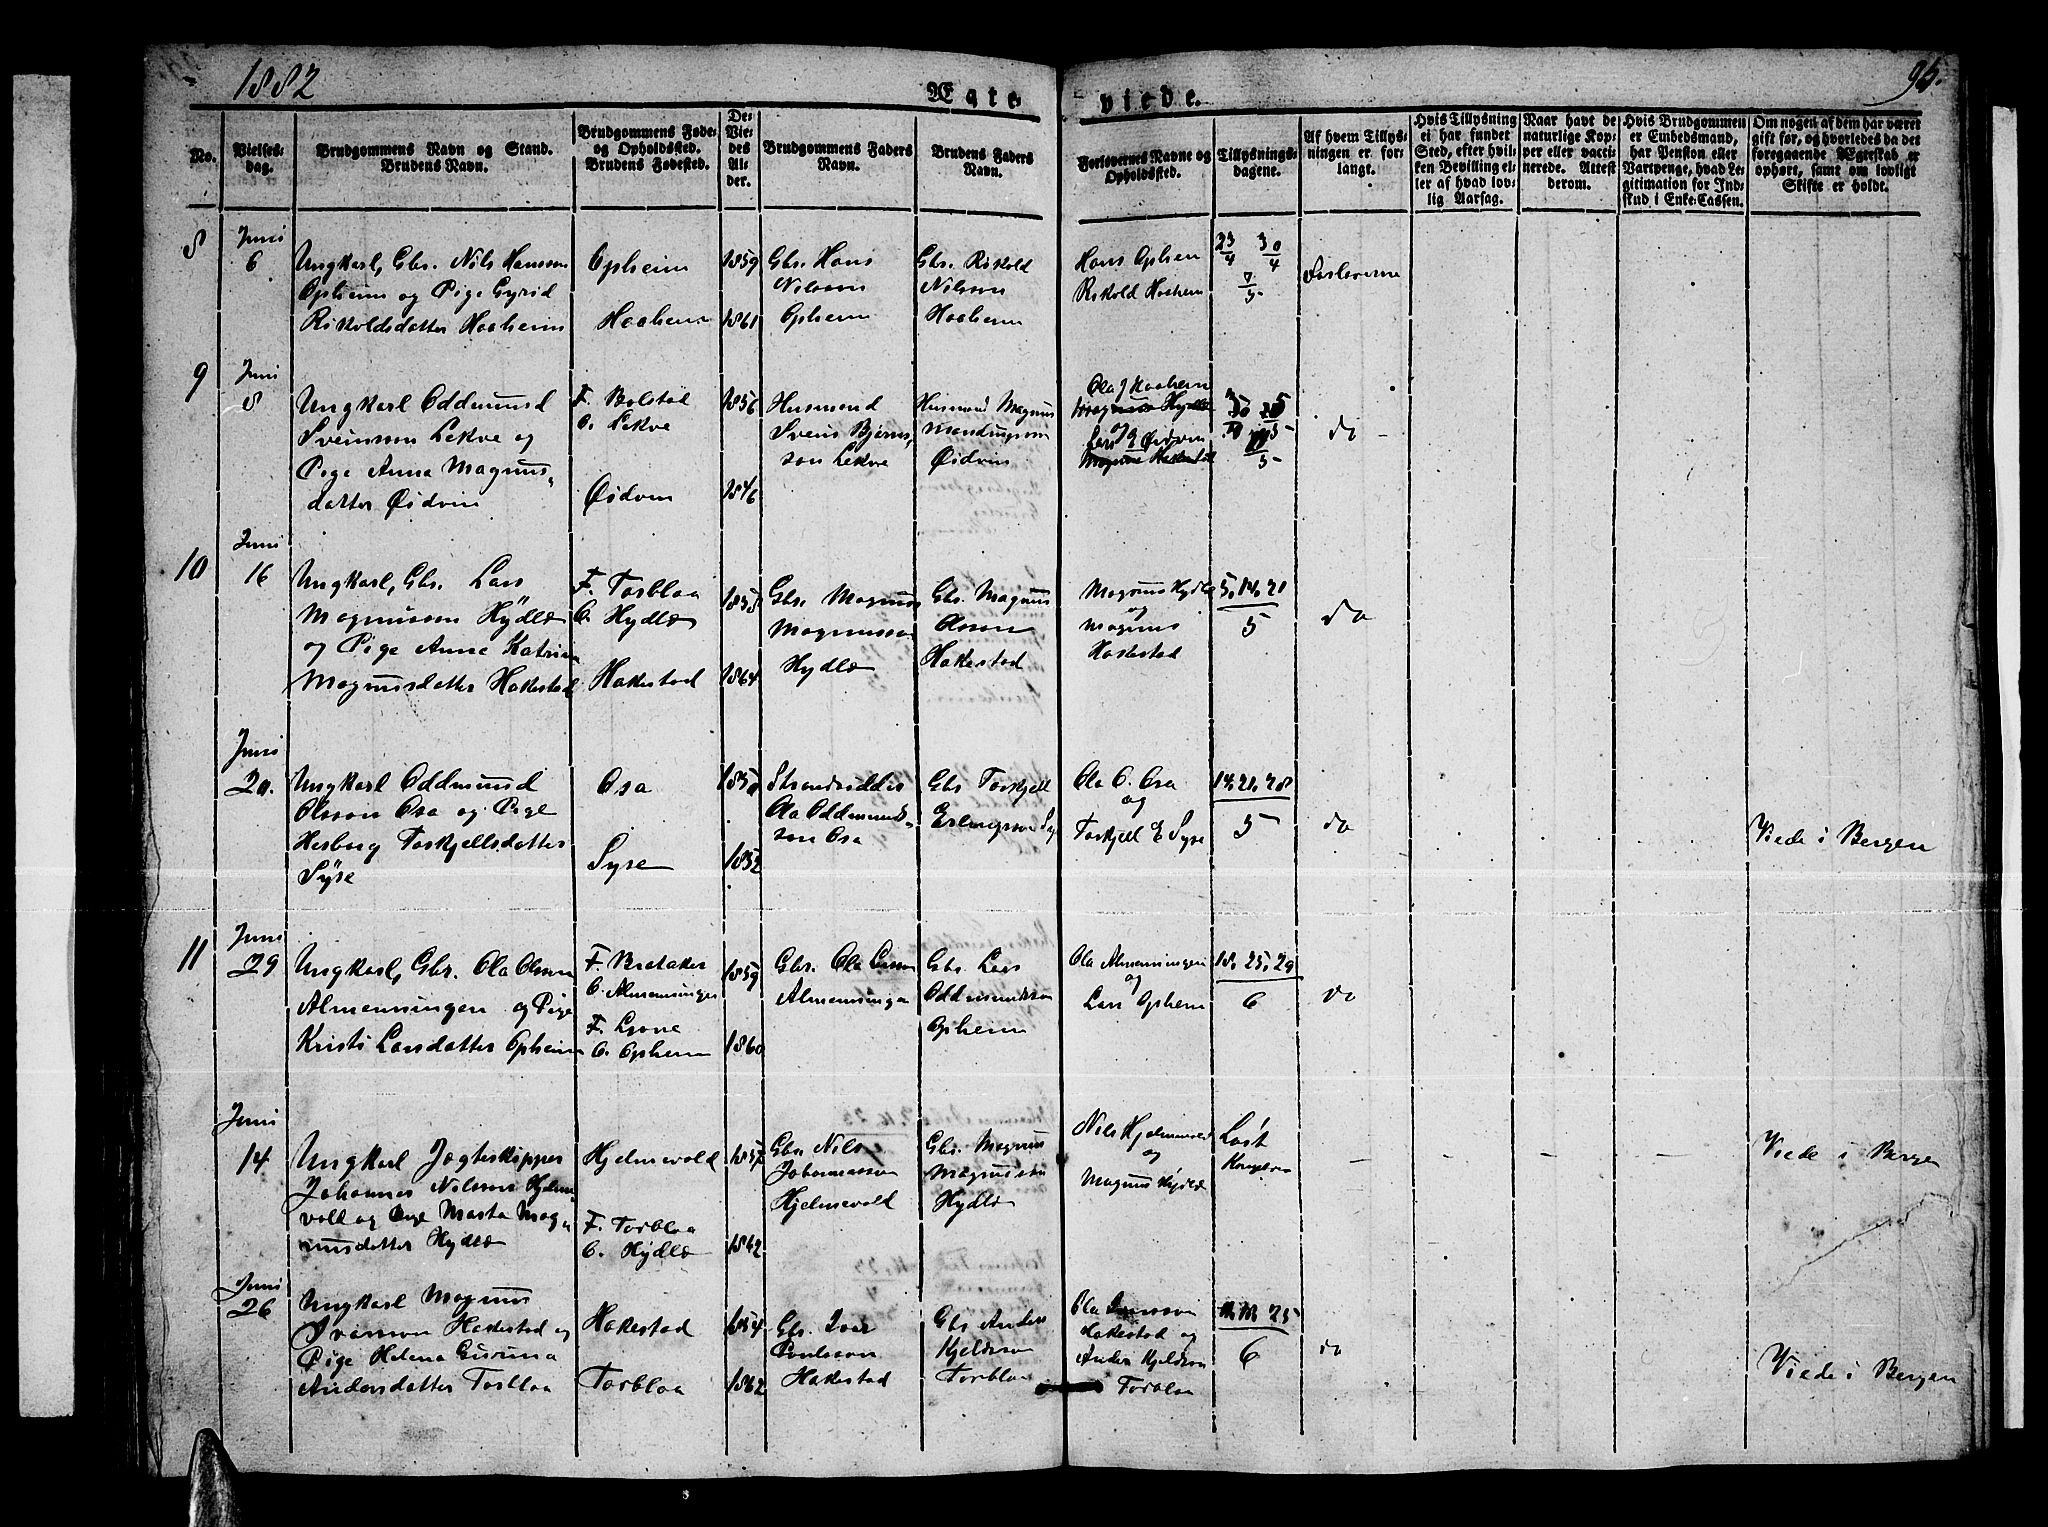 1882
Ægte
viede.
95.
No.
Vielses-
dag.
Brudgommens Navn og Stand.
Brudens Navn.
Brudgommens Føde-
og Opholdssted.
Brudens Fødested.
De
Vie-
des
Al-
der.
Brudgommens Faders
Navn.
Brudens Faders
Navn.
Forlovernes Navne og
Opholdssted.
Tillysnings-
dagene.
Af hvem Tillys-
ningen er for-
langt.
Hvis Tillysning
ei har fundet
Sted, efter hvil-
ken Bevilling el-
ler af hvad lov-
lig Aarsag.
Naar havt de
naturlige Kop-
per eller vacci-
nerede. Attest
derom.
Hvis Brudgommen
er Embedsmand,
har Pension eller
Vartpenge, hvad Le-
gitimation for Ind-
skud i Enke-Cassen.
Om nogen af dem har været
gift før, og hvorledes da det
foregaaende Ægteskab er
ophørt, samt om lovligt
Skifte er holdt.
8
Juni
6
Ungkarl, Gbr. Nils Hansson
Opheim og Pige Gyrid
Rikoldsdatter Haaheim
Opheim
Haaheim
1859
1861
Gbr. Hans
Nilsson
Opheim
Gbr. Rikold
Nilsson
Haaheim
Hans Opheim
Rikold Haaheim
23/4 30/4
7/5
Forloverne
9
Juni
8
Ungkarl Oddmund
Sveinsson Lekve og
Pige Anna Magnus-
datter Øidvin
F. Bolstad
O. Lekve
Øidvin
1856
1846
Husmand
Svein Bjørns-
son Lekve
Husmand Magnus
Øidvin
Ola J Haaheim
Magnus Hydle
og
Lars Øidvin
Magnus Hakestad
do
10
Juni
16
Ungkarl, Gbr. Lars
Magnusson Hydle
og Pige Anna Katrina
Magnusdatter Hakestad
F. Torbloa
O. Hydle
Hakestad
1858
1864
Gbr. Magnus
Magnusson
Hydle
Gbr. Magnus
Olsson
Hakestad
Magnus Hydle
og
Magnus
Hakestad
5, 14, 21
5
do
Juni
20.
Ungkarl Oddmund
Olsson Osa og Pige
Herborg Torkjellsdatter
Syse
Osa
Syse
1850
1852
Strandsidder
Ola Oddmunds-
son Osa
Gbr Torkjell
Erlingsson Syse
Ola O. Osa
og
Torkjell E Syse
14, 21, 28
5
do
Viede i Bergen
11
Juni
29
Ungkarl, Gbr. Ola Olsson
Almenningen og Pige
Kristi Larsdatter Opheim
F. Bretaker
O. Almenningen
F. Lione
O. Opheim
1859
1860
Gbr. Ola Larsson
Almenningen
Gbr. Lars
Oddmundsson
Opheim
Ola Almenningen
og
Lars Opheim
18, 25, 29
6
do
Juni
14
Ungkarl Jagteskipper
Johannes Nilsson Hjelme-
vold og Pige Marta Mag-
nusdatter Hydle
Hjelmevold
F. Torbloa
O. Hydle
1857
1862
Gbr Nils
Johannesson
Hjelmevold
Gbr. Magnus
Magnusson
Hydle
Nils Hjelmevold
og
Magnus Hydle
Løst
Viede i Bergen
Juni
26
Ungkarl Magnus
Ivarson Hakestad og
Pige Helena Guruna
Andersdatter Torbloa
Hakestad
Torbloa
1854
1862
Gbr. Ivar
Poulsson
Hakestad
Gbr Anders
Kjeldsson
Torbloa
Ola Ivarsson
Hakestad og
Anders Kjeldson
Torbloa
25
6
do
Viede i Bergen